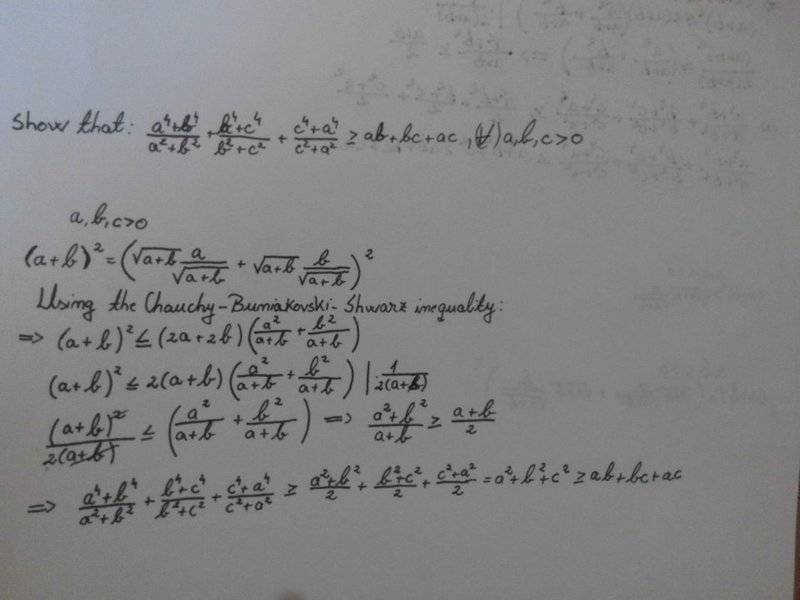 Show that: (a⁴+b⁴)/(a²+b²) + (b⁴+c⁴)/(b²+c²) + (c⁴+a⁴)/(c²+a²) ≥ ab+bc+ac, (∀) a,b,c>0
a,b,c>0
(a+b)² = (√(a+b) a/√(a+b) + √(a+b) b/√(a+b))²
Using the Chauchy-Buniakovski-Shwarz inequality:
=> (a+b)² ≤ (2a+2b)(a²/(a+b) + b²/(a+b))
(a+b)² ≤ 2(a+b)(a²/(a+b) + b²/(a+b)) | 1/(2(a+b))
(a+b)²/(2(a+b)) ≤ (a²/(a+b) + b²/(a+b)) => (a²+b²)/(a+b) ≥ (a+b)/2
=> (a⁴+b⁴)/(a²+b²) + (b⁴+c⁴)/(b²+c²) + (c⁴+a⁴)/(c²+a²) ≥ (a²+b²)/2 + (b²+c²)/2 + (c²+a²)/2 = a²+b²+c² ≥ ab+bc+ac